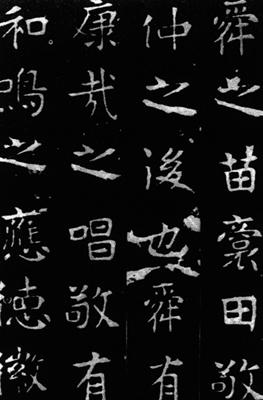 舜之苗裔田敬
仲之後也舜有
康哉之唱敬有
和鳴之應德徽